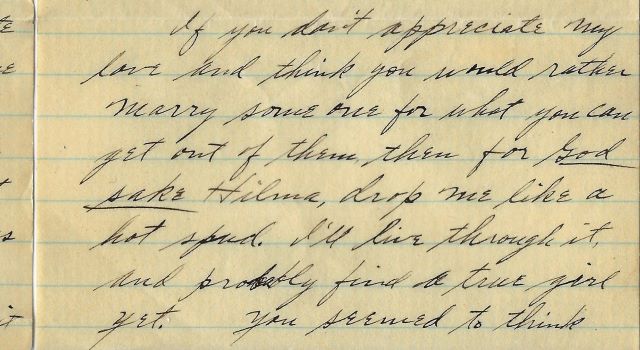 If you don't appreciate my
love and think you would rather
marry some one for what you can
get out of them, then for God
sake Hilma, drop me like a
hot spud. I'll live through it,
and probably find a true girl
yet. You seemed to think